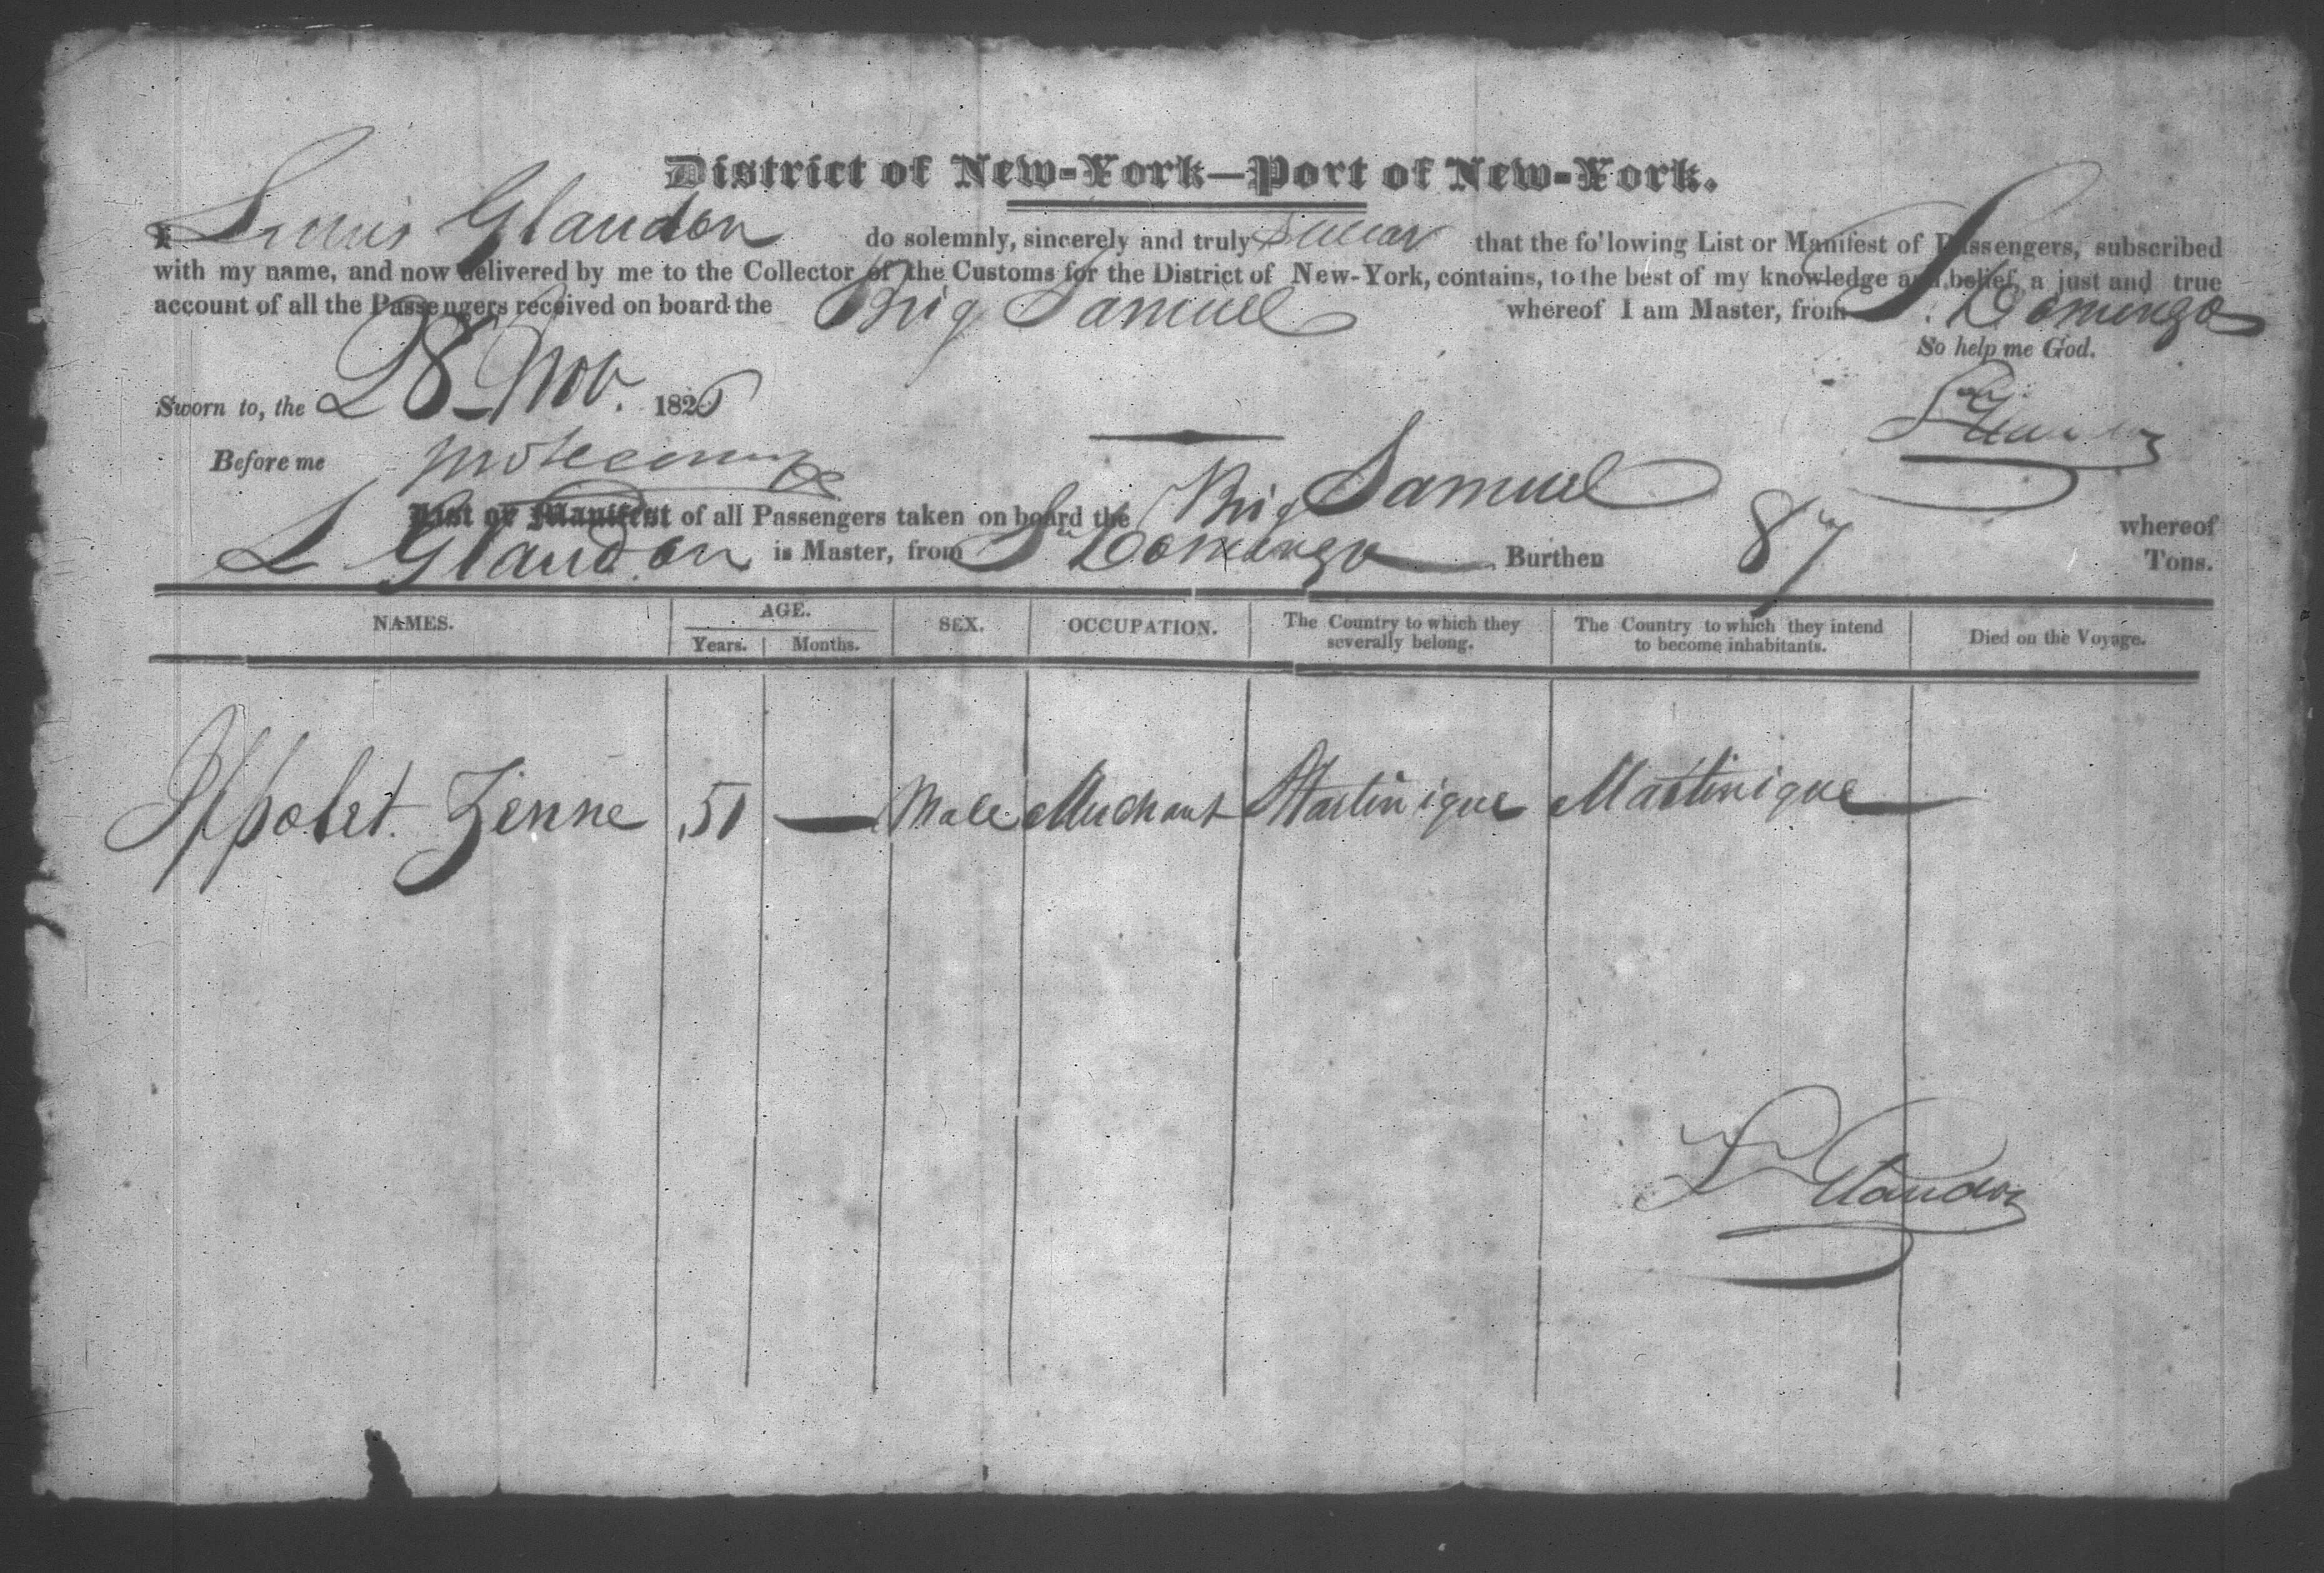 District of New-York—Port of New-York.
I Louis Glaudon do solemnly, sincerely and truly Swear that the fo'lowing List or Manifest of Passengers, subscribed
with my name, and now delivered by me to the Collector of the Customs for the District of New-York, contains, to the best of my knowledge and belief, a just and true
account of all the Passengers received on board the Brig Samuel whereof I am Master, from St. Domingo
So help me God.
Sworn to, the 28 Nov. 1826
Ls Glaudon
Before me
List or Manifest of all Passengers taken on board the Brig Samuel whereof
L Glaudon is Master, from St Domingo Burthen 87 Tons.
NAMES. AGE. SEX. OCCUPATION. The Country to which they severally belong. The Country to which they intend to become inhabitants. Died on the Voyage.
Years. Months.
Ippolet. Zenne 51 — Male Merchant Martinique Martinique
Ls Glaudon